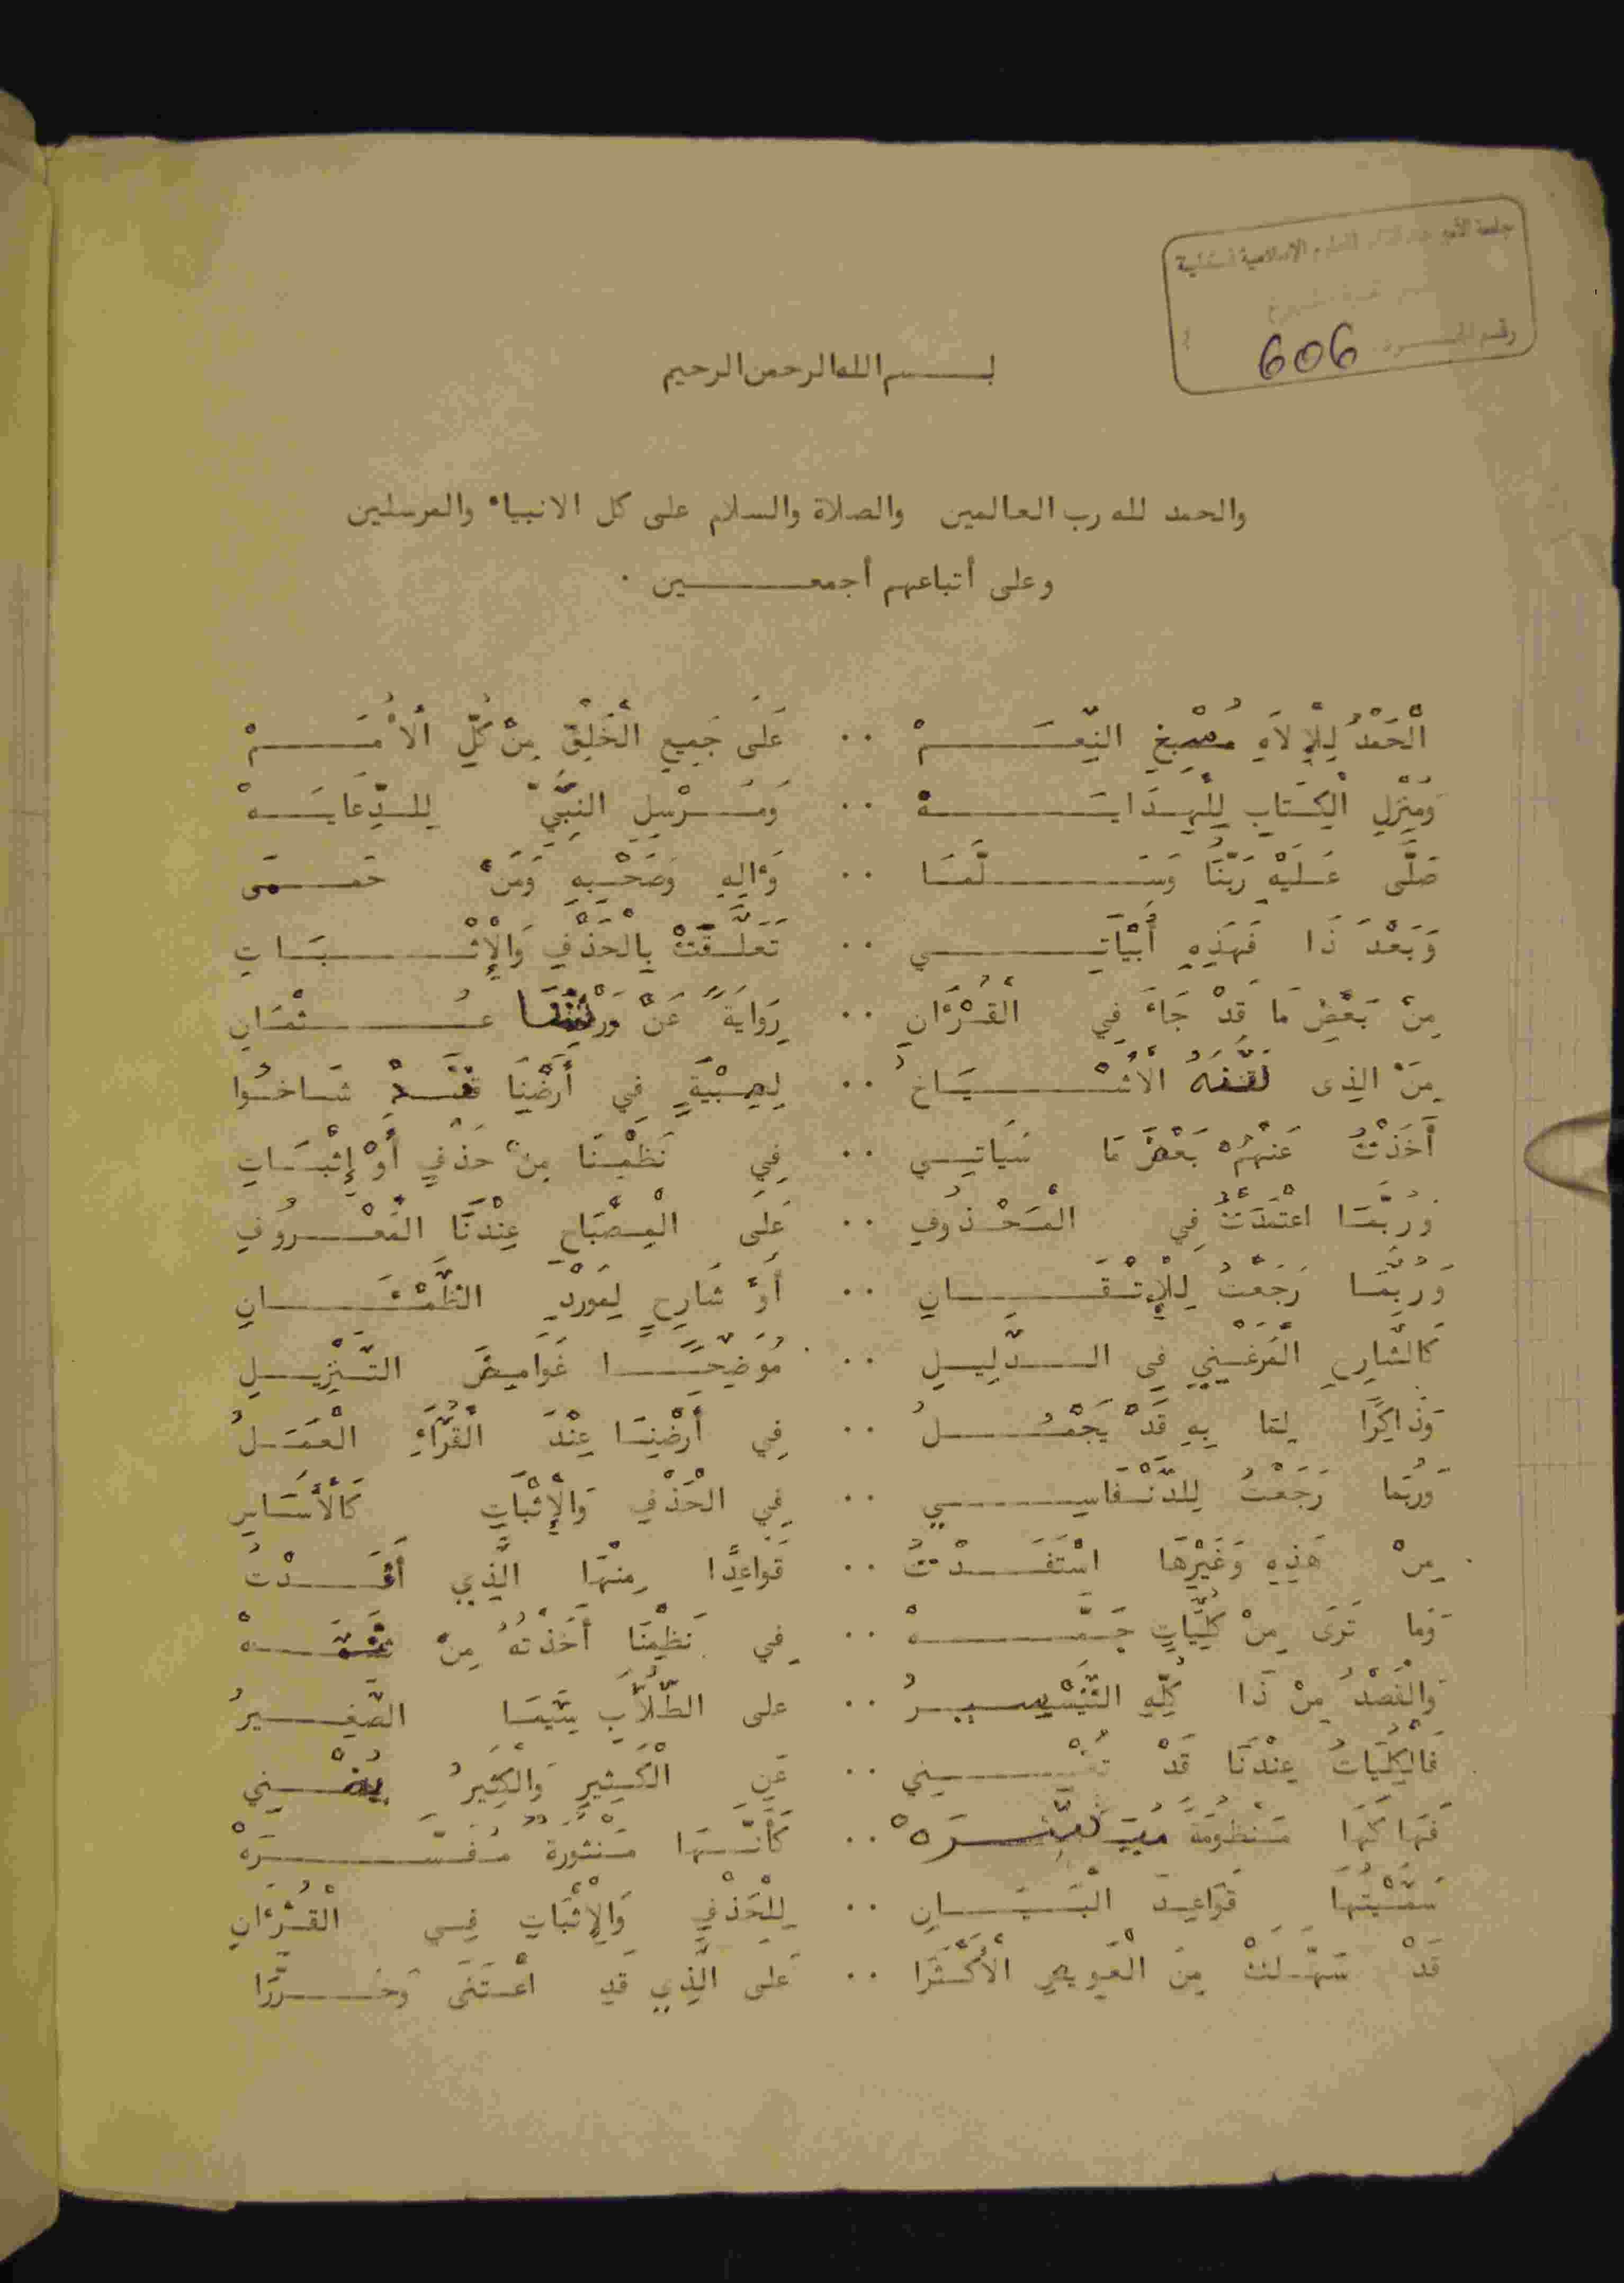 جامعة الأمير عبد القادر للعلوم الإسلامية قسنطينة
رقم الجــــرد 606
بـــــسم الله الرحمن الرحيم
والحمد لله رب العالمين والصلاة والسلام على كل الانبياء والمرسلين
وعلى أتباعهم أجمعـــــين .
الْحَمْدُ لِلْإِلَاهِ مُسْبِغِ النِّعَـــــمْ .. عَلَى جَمِيعِ الْخَلْقِ مِنْ كُلِّ الْأُمَـــــمْ
وَمُنْزِلِ الْكِتَابِ لِلْهِدَايَـــــهْ .. وَمُـــرْسِلِ النَّبِيِّ لِلـدِّعَايَـــهْ
صَلَّى عَلَيْهِ رَبُّنَا وَسَـــــلَّمَا .. وَءَالِهِ وَصَحْبِهِ وَمَنْ حَمَـــى
وَبَعْدَ ذَا فَهَذِهِ أَبْيَاتِـــــي .. تَعَلَّـقَتْ بِالْحَذْفِ وَالْإِثْـــبَـاتِ
مِنْ بَعْضِ مَا قَدْ جَاءَ فِي الْقُـرْءَانِ .. رِوَايَةً عَنْ وَرْشِنَا عُـــــثْمَانِ
مِنَ الذِى لَقَّنَهُ الْأَشْـــــيَاخُ .. لِصِبْيَةٍ فِي أَرْضِنَا قَـــدْ شَـاخُـوا
أَخَذْتُ عَنْهُمْ بَعْضَ مَا سَيَاتِـــي .. فِي نَظْمِـنَا مِنْ حَذْفٍ أَوْ إِثْبَـاتِ
وَرُبَّمَـا اعْتَمَدْتُ فِي الْمَحْـذُوفِ .. عَلَى الْمِـصْبَاحِ عِنْدَنَا الْمَعْـــرُوفِ
وَرُبَّمَـا رَجَعْتُ لِلْإِتْـقَـــــانِ .. أَوْ شَارِحٍ لِمَوْرِدِ الظَّمْـــئَـانِ
كَالشَّارِحِ الْمَرْغَـنِيِ فِي الـــدَّلِيـلِ .. مُوَضِّحًـــا غَوَامِضَ التَّـنْزِيـلِ
وَذَاكِرًا لِمَا بِهِ قَدْ يَجْمُـــــلُ .. فِي أَرْضِنَـا عِنْدَ الْقُرَّاءِ الْعَمَـلُ
وَرُبَمَا رَجَعْتُ لِلدَّنْـفَاسِـــــي .. فِي الْحَذْفِ وَالْإِثْبَاتِ كَالْأَسَـاسِ
مِنْ هَذِهِ وَغَيْرِهَا اسْتَفَـــدْتُ .. قَوَاعِدًا مِنْهَا الَّذِي أَفَـــدْتُ
وَمَا تَرَى مِنْ كُلِّيَاتٍ جَمَّـــــهْ .. فِي نَظْمِنَا أَخَذْتُهُ مِنْ ثَمَّـــهْ
وَالْقَصْدُ مِنْ ذَا كُلِّهِ التَّيْسِيـــرُ .. على الطُلَّابِ سِيَّمَـا الصَّغِـــيرُ
فَالْكُلِّيَاتُ عِنْدَنَا قَدْ تُغْـــــنِي .. عَنِ الْكَثِيرِ وَالْكَثِيرُ يُضْـــنِي
فَهَاكَهَا مَنْظُومَةً مُيَـــسَّرَهْ .. كَأَنَّـهَا مَنْثُورَةٌ مُفَسَّـــــرَهْ
سَمَّيْتُهَا قَوَاعِـدَ الْبَـيَـــانِ .. لِلْحَذْفِ وَالْإِثْبَاتِ فِـي الْقُـرْءَانِ
قَدْ سَهَّـلَتْ مِنَ الْعَوِيصِ الْأَكْـثَرَا .. عَلَى الَّذِي قَدِ اعْـتَنَى وَحَـــرَّرَا